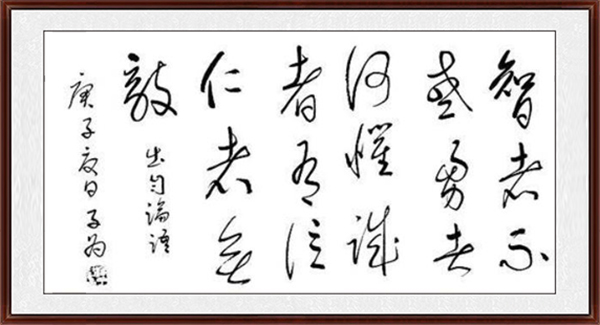 智者不
惑勇者
何懼誠
者有信
仁者無
敵
出自論語
庚子夏日子為